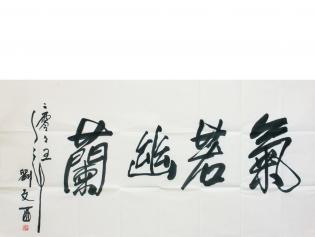 氣若幽蘭
劉文西